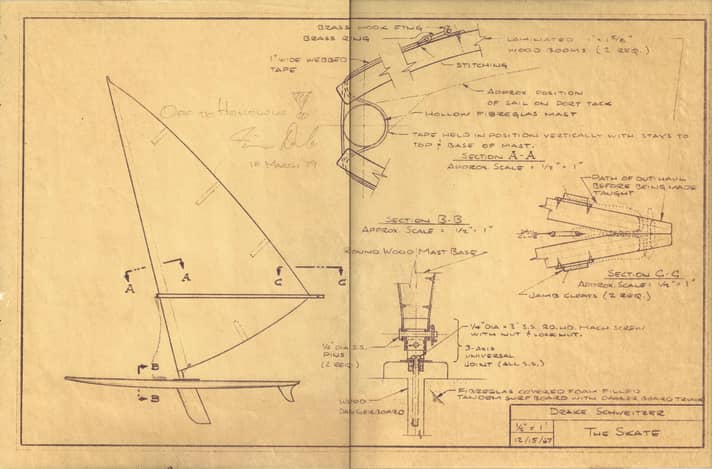 BRASS HOOK FTNG
BRASS RING
1" WIDE WEBBED
TAPE
LAMINATED 1" x 1 5/8"
WOOD BOOMS (2 REQ.)
STITCHING
APPROX POSITION
OF SAIL ON PORT TACK
HOLLOW FIBREGLAS MAST
TAPE HELD IN POSITION VERTICALLY WITH STAYS TO
TOP & BASE OF MAST.
SECTION A-A
APPROX. SCALE = 1/2" = 1"
18 MARCH 79
A
A
C
C
B
B
SECTION B-B
APPROX SCALE = 1/2" = 1"
ROUND WOOD MAST BASE
1/4" DIA S.S.
PINS
(2 REQ)
1/4" DIA x 3" S.S. RD. HD. MACH SCREW
WITH NUT & LOCKNUT.
3-AXIS
UNIVERSAL
JOINT (ALL S.S.)
WOOD
DAGGERBOARD
FIBREGLAS COVERED FOAM FILLED
TANDEM SURFBOARD WITH DAGGER BOARD TRUNK
PATH OF OUTHAUL
BEFORE BEING MADE
TAUGHT
SECTION C-C
APPROX. SCALE: 1/2" = 1"
JAMB CLEATS (2 REQ.)
DRAKE SCHWEITZER
1/2" = 1'
12/15/67
THE SKATE